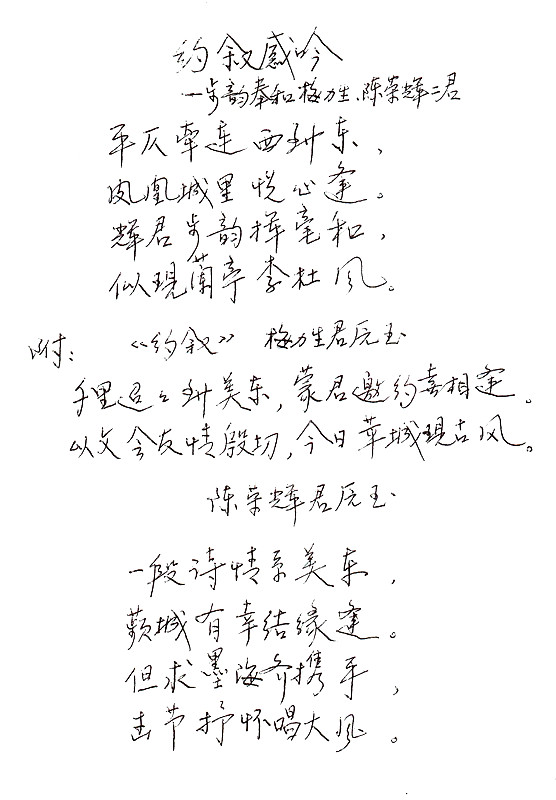 约叙感吟
一步韵奉和梅力生、陈荣辉二君
平仄牵连西到东，
凤凰城里悦心逢。
辉君步韵挥毫和，
似现兰亭李杜风。
附： 《约叙》 梅力生君原玉
千里迢迢到美东，蒙君邀约喜相逢。
以文会友情殷切，今日华城现古风。
陈荣辉君原玉
一段诗情系美东，
城有幸结缘逢。
但求墨海齐携手，
击节抒怀唱大风。